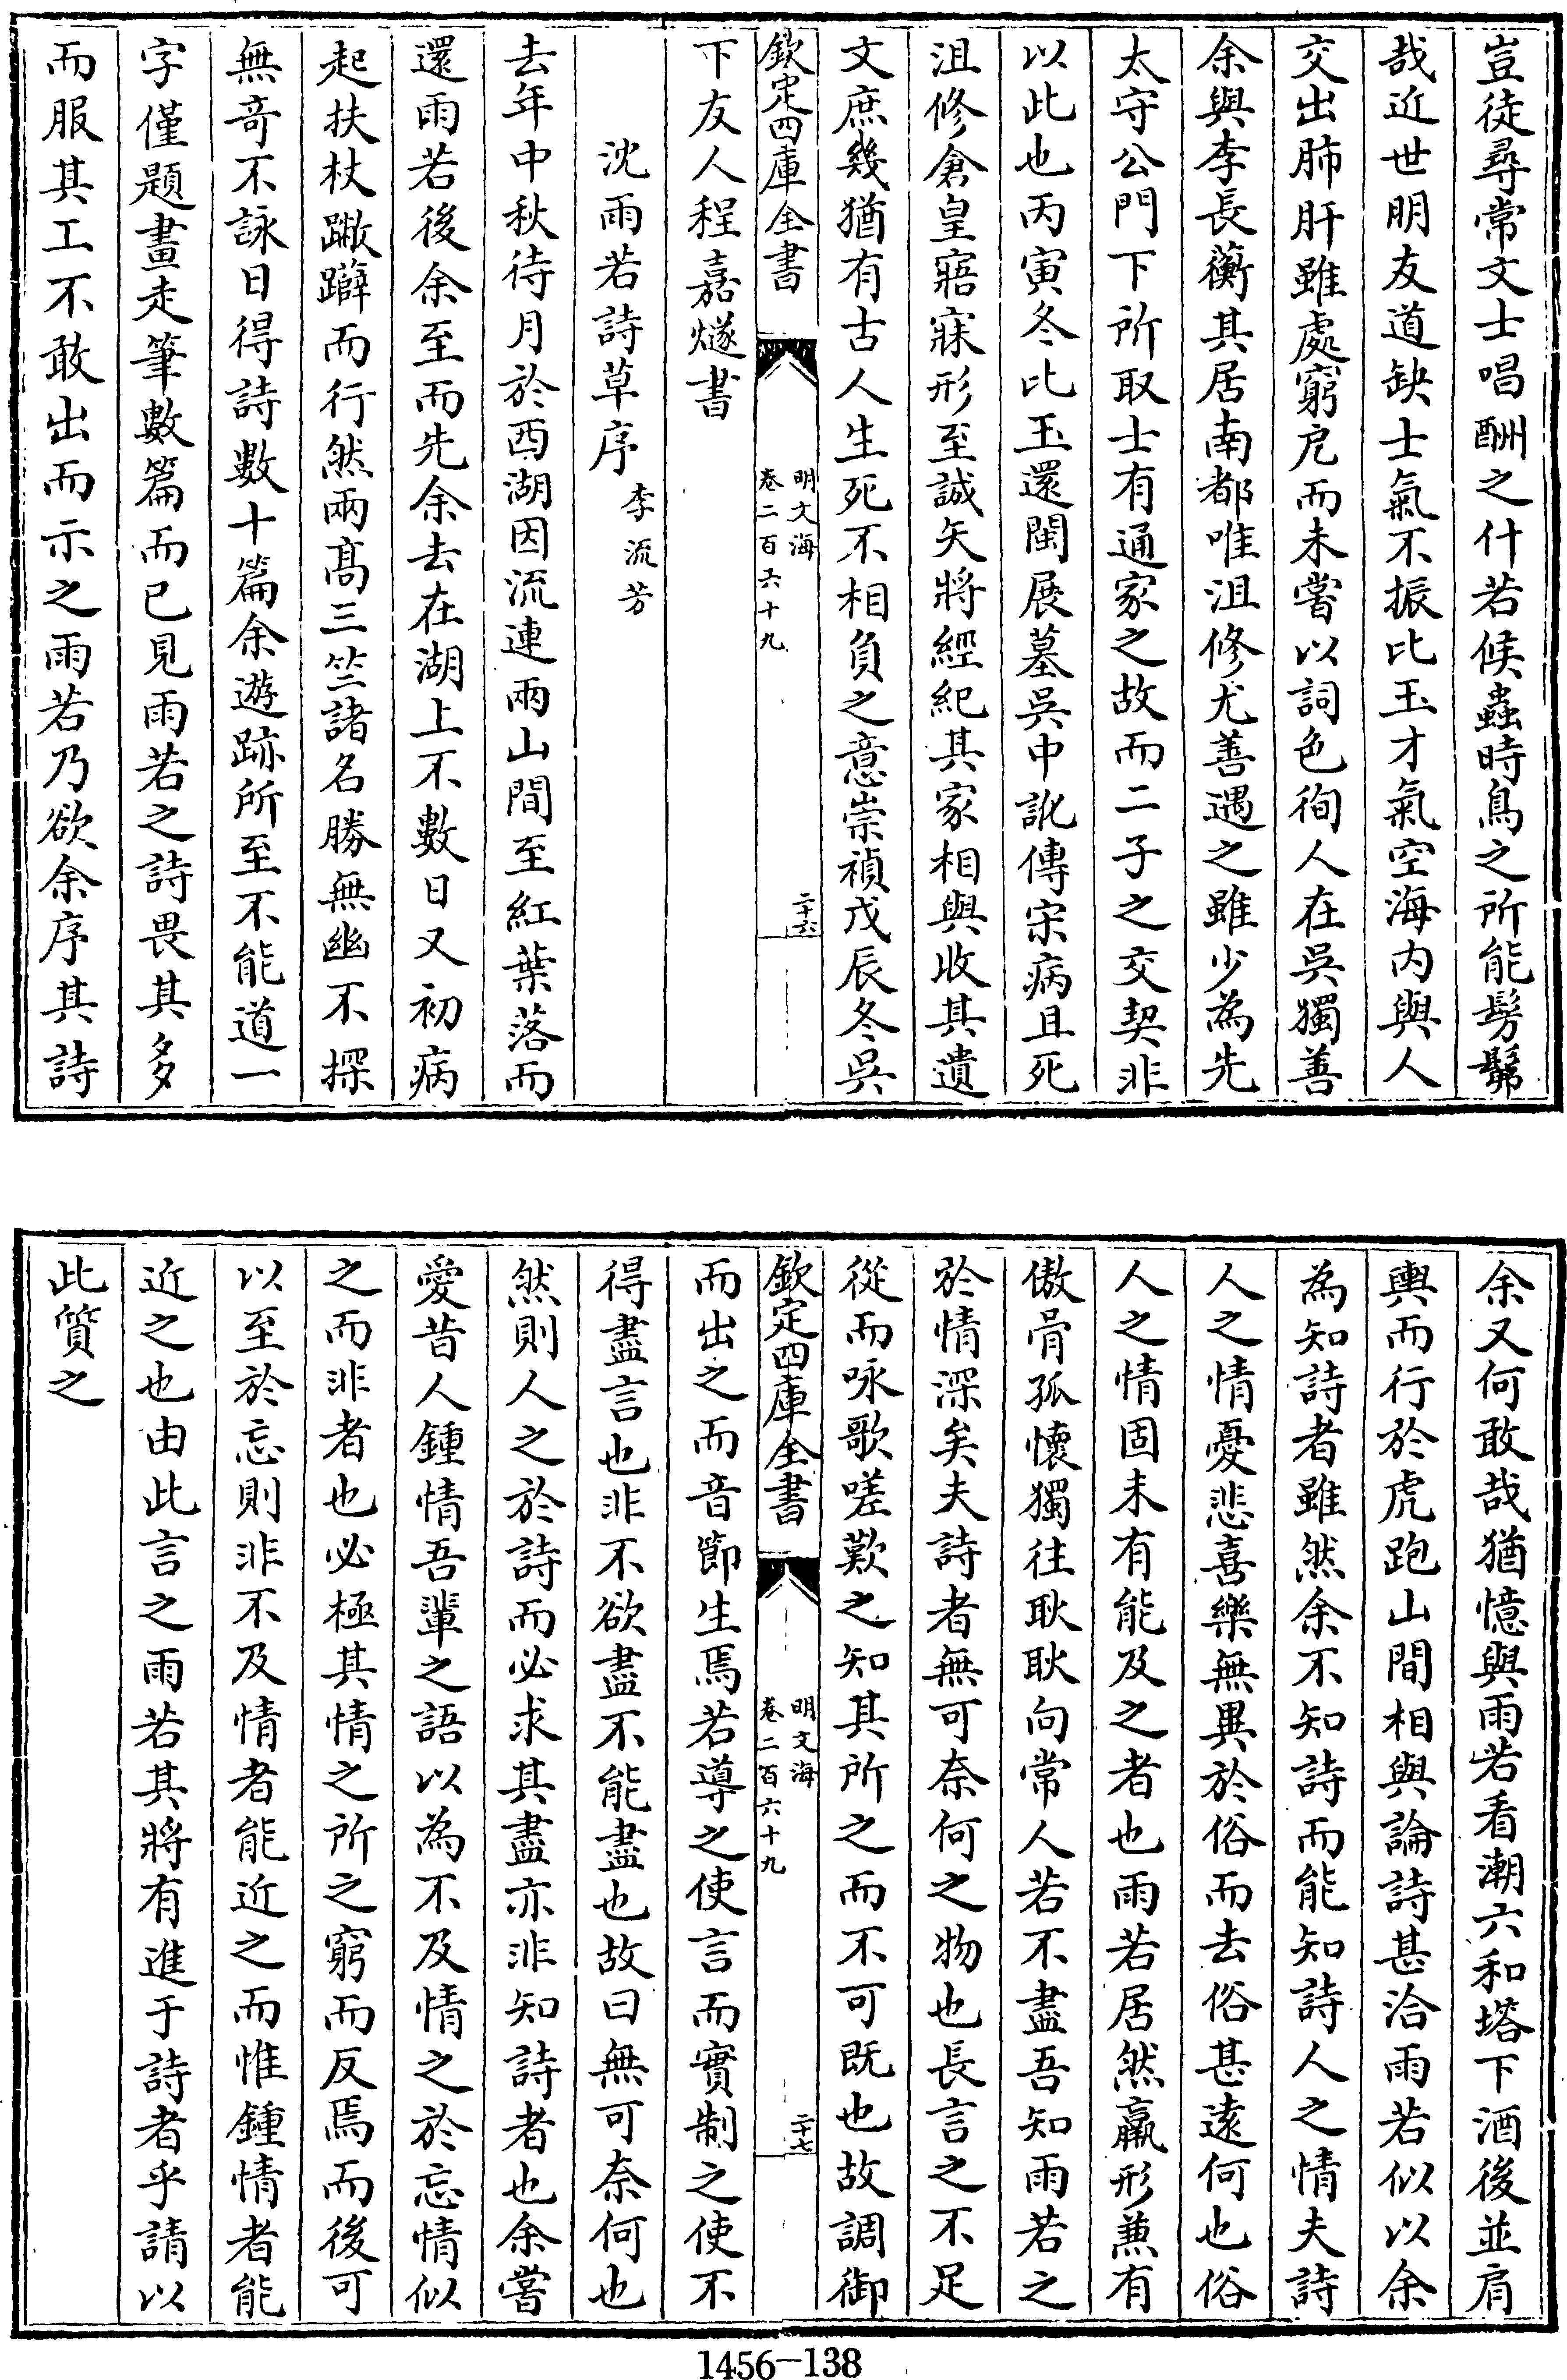 豈徒尋常文士唱酬之什若候蟲時鳥之所能髣髴
哉近世明友道缺士氣不振比玉才氣空海内與人
交出肺肝雖處窮厄而未嘗以詞色徇人在吳獨善
余與李長蘅其居南都唯沮修尤善遇之雖少為先
太守公門下所取士有通家之故而二子之交契非
以此也丙寅冬比玉還閩展墓吳中訛傳宋病且死
沮修倉皇寤寐形至誠矢將經紀其家相與收其遺
文庶幾猶有古人生死不相負之意崇禎戊辰冬吳
欽定四庫全書
明文海
卷二百六十九
二十六
下友人程嘉燧書
沈雨若詩草序
李流芳
去年中秋待月於西湖因流連兩山間至紅葉落而
還雨若後余至而先余去在湖上不數日又初病
起扶杖蹩躃而行然兩高三竺諸名勝無幽不探
無奇不詠日得詩數十篇余遊跡所至不能道一
字僅題畫走筆數篇而已見雨若之詩畏其多
而服其工不敢出而示之雨若乃欲余序其詩
余又何敢哉猶憶與雨若看潮六和塔下酒後並肩
輿而行於虎跑山間相與論詩甚洽雨若似以余
為知詩者雖然余不知詩而能知詩人之情夫詩
人之情憂悲喜樂無異於俗而去俗甚遠何也俗
人之情固未有能及之者也雨若居然羸形兼有
傲骨孤懷獨往耿耿向常人若不盡吾知雨若之
於情深矣夫詩者無可奈何之物也長言之不足
從而咏歌嗟歎之知其所之而不可既也故調御
欽定四庫全書
明文海
卷二百六十九
二十七
而出之而音節生焉若導之使言而實制之使不
得盡言也非不欲盡不能盡也故曰無可奈何也
然則人之於詩而必求其盡亦非知詩者也余嘗
愛昔人鍾情吾輩之語以為不及情之於忘情似
之而非者也必極其情之所之窮而反焉而後可
以至於忘則非不及情者能近之而惟鍾情者能
近之也由此言之雨若其將有進于詩者乎請以
此質之
1456-138